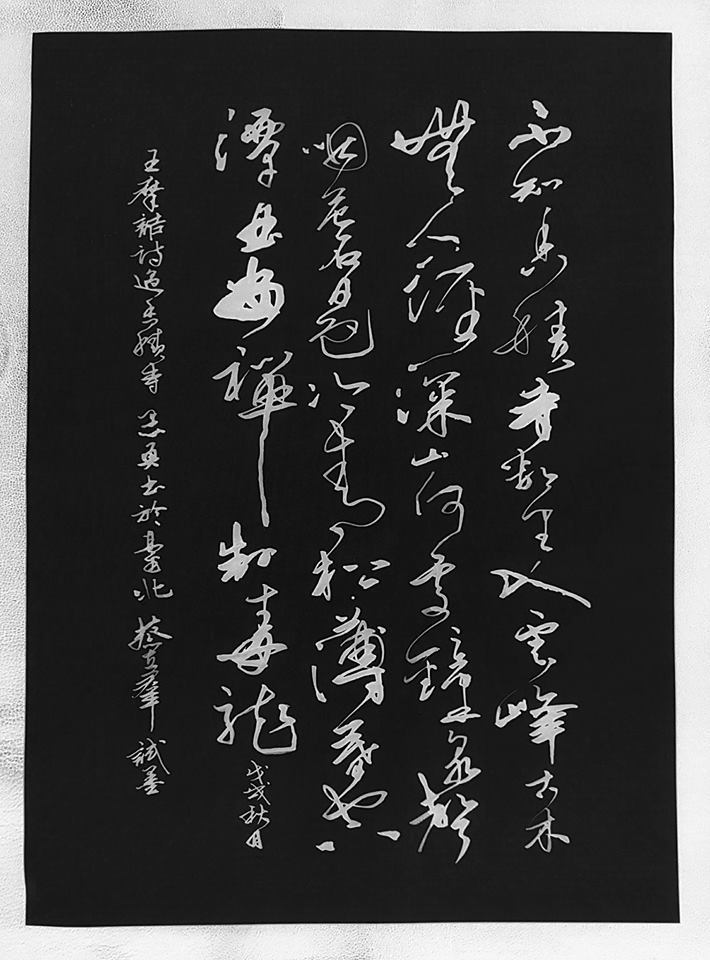 不知香積寺數里入雲峰古木
無人徑深山何處鐘泉聲
咽危石日色冷青松薄暮空
潭曲安禪制毒龍
戊戌秋月
王摩詰詩過香積寺 書於臺北 蔡 試墨